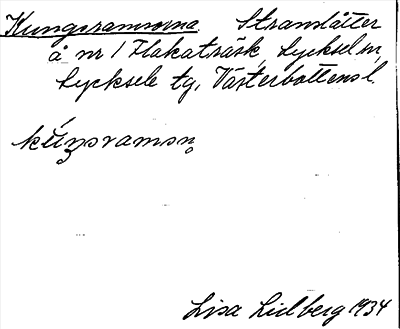 Kungsramsorna. Strandslåtter
å nr 1 Flakaträsk, Lycksel sn,
Lycksele tg, Västerbottens l.
kúŋsramsn̥
Lisa Lidberg 1934